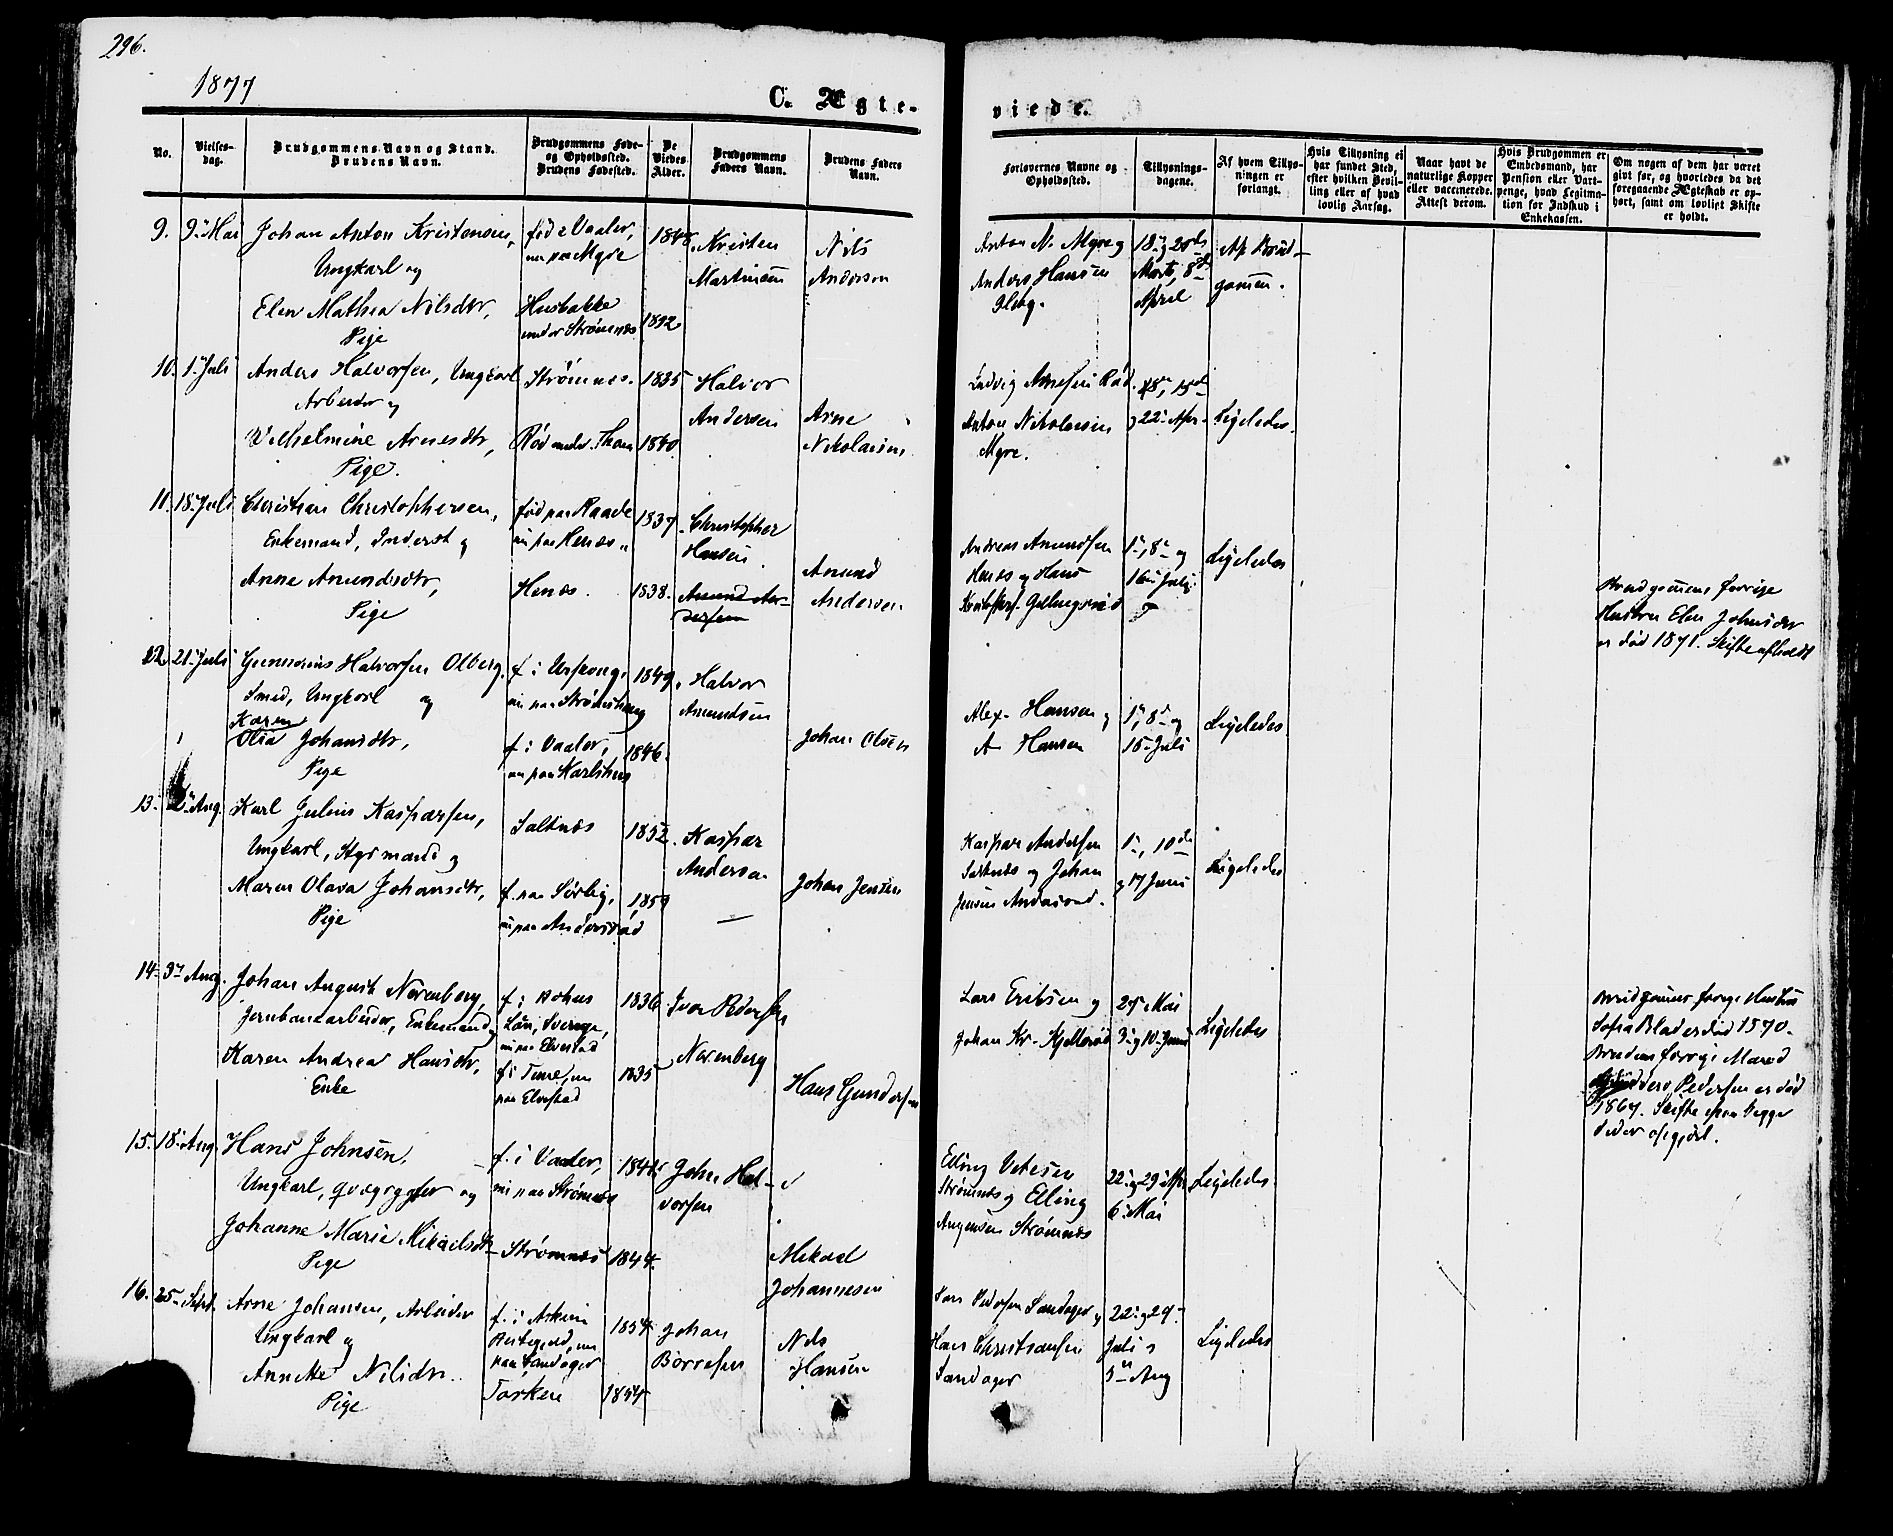 296.
1877
C. Ægte-
viede.
No.
Vielses-
dag.
Brudgommens Navn og Stand.
Brudens Navn.
Brudgommens Føde-
og Opholdssted.
Brudens Fødested.
De
Viedes
Alder.
Brudgommens
Faders Navn.
Brudens Faders
Navn.
Forlovernes Navne og
Opholdssted.
Tillysnings-
dagene.
Af hvem Tillys-
ningen er
forlangt.
Hvis Tillysning ei
har fundet Sted,
efter hvilken Bevil-
ling eller af hvad
lovlig Aarsag.
Naar havt de
naturlige Kopper
eller vaccinerede.
Attest derom.
Hvis Brudgommen er
Embedsmand, har
Pension eller Vart-
penge, hvad Legitima-
tion for Indskud i
Enkekassen.
Om nogen af dem har været
gift før, og hvorledes da det
foregaaende Ægteskab er op-
hørt, samt om lovligt Skifte
er holdt.
9. 9. Mai Johan Anton Kristensen,
Ungkarl og
Elen Mathea Nilsdtr,
Pige
fød i Vaaler,
nu paa Myre
Husbakke
under Strømnæs
1832
Kristen
Martinsen
Nils
Anderson
Anton N. Myre og
Anders Hansen
18 og 25de
Marts, 8de
April
Af Brud-
gommen.
10. 1. Juli Anders Halvorsen, Ungkarl
Arbeider og
Vilhelmine Arnesdtr,
Pige.
Strømnes.
Rød under Tham
1835
1840
Halvor
Andersen
Arne
Nikolaisen
Ludvig Arnesen Rød.
Anton Nikolaisen
Myre.
8de, 15de
og 22. Apr.
Ligeledes.
11. 18. Juli Christian Christophersen,
Enkemand, Inderst og
Anne Amundsdtr,
Pige
fød paa Raade
nu paa Henæs
Henæs.
1837
1838.
Christopher
Hansen
Amund An-
dersen
Amund
Andersen
Andreas Amundsen
Henæs og Hans
1, 8 og
Juli
Ligeledes
Brudgommens forrige
Hustru Elen Johnsdtr
er død 1871. Skifte afholdt
12. 21. Juli Gunnerius Halvorsen Olberg,
Smed, Ungkarl og
Karen
Olia Johansdtr,
Pige
f. i Urskoug,
nu paa
f. i Vaaler,
nu paa Karlshus
1849.
1846.
Halvor
Amundsen
Johan Olsen
Alex. Hansen og
A. Hansen
1, 8 og
15 Juli
Ligeledes
13. Aug. Karl Julius Kaspersen,
Ungkarl, Styrmand og
Maren Olava Johansdtr,
Pige
Saltnæs
f. paa Sørby,
nu paa
1852.
1859
Kaspar
Anderson
—
Johan Jensen
Kaspar Andersen
Saltnæs og Johan
Jensen
1, 10de
og 17 Juni
Ligeledes
14. 3 Aug. Johan August Norenberg,
Jernbanearbeider, Enkemand og
Karen Andrea Hansdtr,
Enke
f. i Bohus
Län, Sverige,
nu paa Elvestad
f. i Tune, nu
paa Elvestad
1836
1835
Ivar Pedersen
Norenberg
Hans Gundersen
Lars Eriksen og
Johan Kr. Kjellerød
27 Mai
3 og 10. Juni
Ligeledes
Brudgommens forrige Hustru
Sofia død 1870.
Brudens forrige Mand
Pedersen er død
1867. Skifte efter begge
deder opgjort.
15. 18. Aug. Hans Johnsen,
Ungkarl, og
Johanne Marie Mikaelsdtr
Pige
f. i Vaaler,
nu paa Strømnæs
Strømnæs
1844.
John Hal-
vorsen
Mikael
Johannesen
Elling
Strømnæs og Elling
Strømnæs
22. og 29. Apr.
6. Mai
Ligeledes.
16. 25. Sept. Arne Johansen, Arbeider
Ungkarl og
Annette Nilsdtr.
Pige
f. i Askim
Præstegjeld, nu
paa Sandager
Torkere
1854
1854
Johan
Borresen
Nils
Hansen
Lars Pedersen Sandager og
Hans Christiansen
Sandager
22. og 29.
Juli
5te Aug
Ligeledes